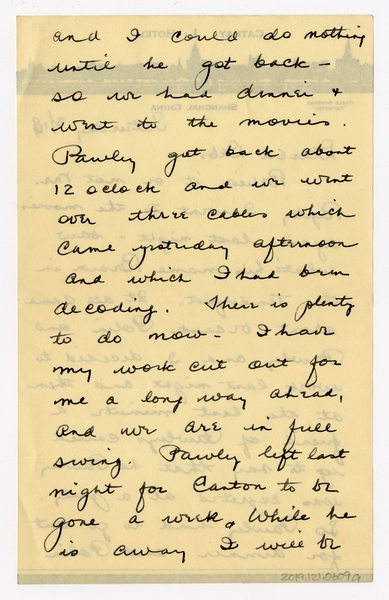 and I could do nothing
until he got back –
so we had dinner +
went to the movies.
Pawley got back about
12 oclock and we went
over three cables which
came yesterday afternoon
and which I had been
decoding. There is plenty
to do now – I have
my work cut out for
me a long way ahead,
and we are in full
swing. Pawley left last
night for Canton to be
gone a week + While he
is away I will be
2019.121.0309a